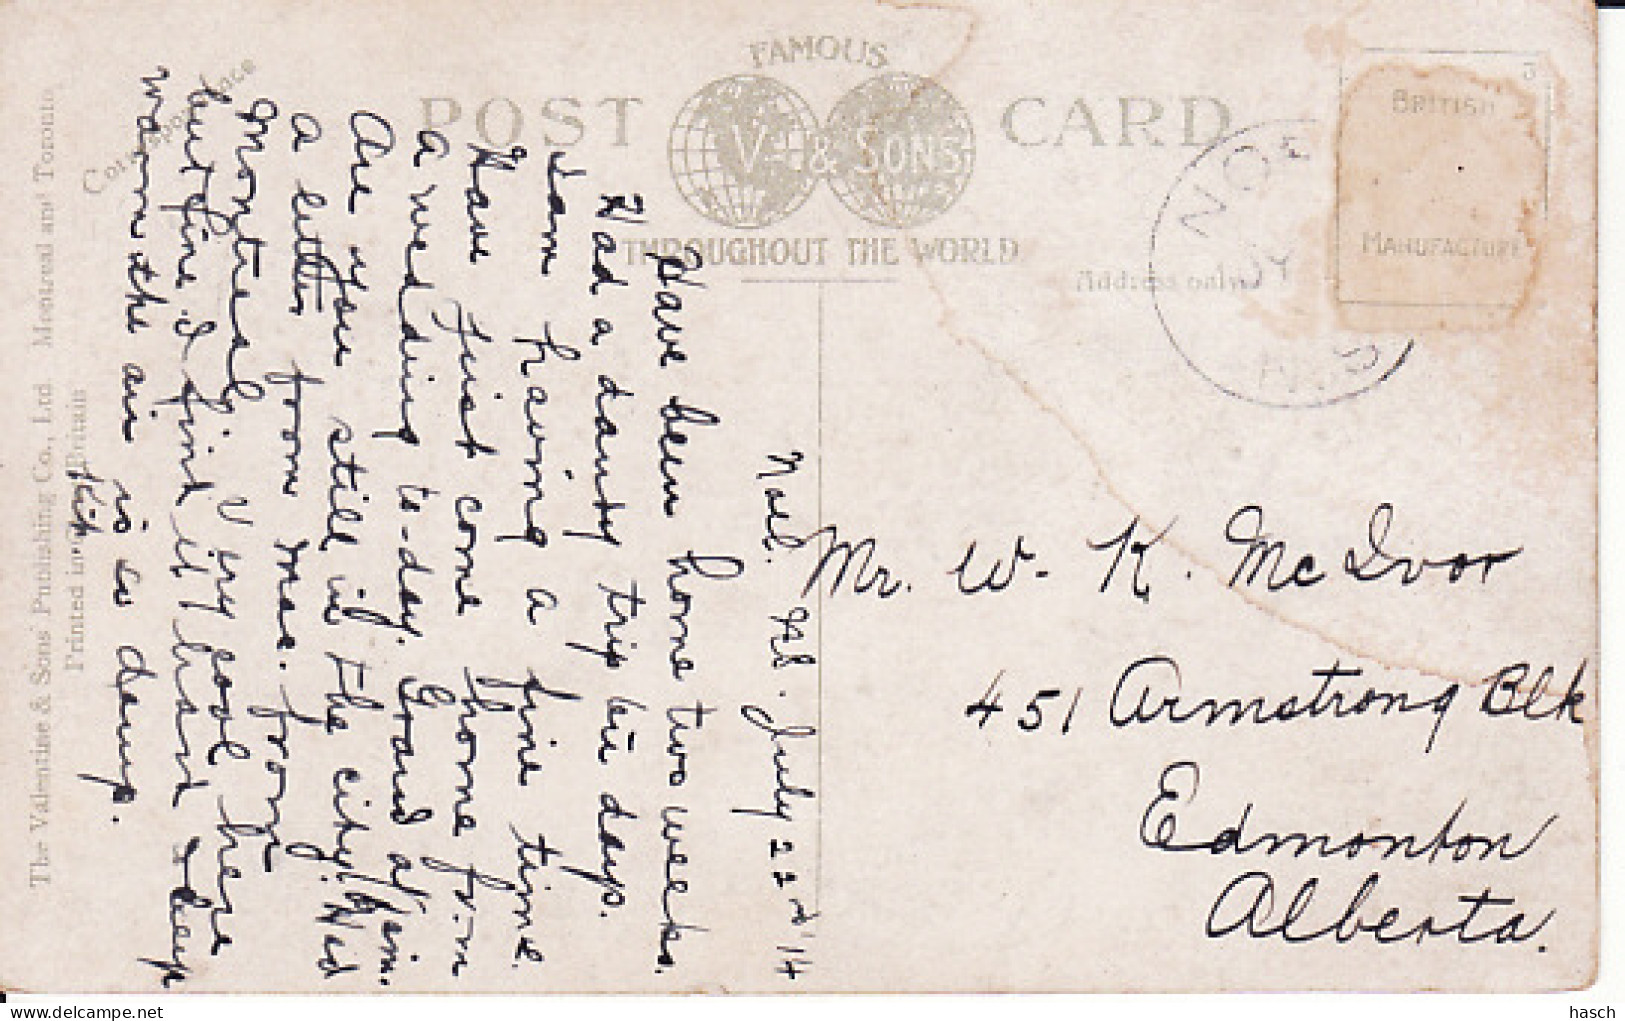 FAMOUS
POST CARD
V. & SONS
THROUGHOUT THE WORLD
Correspondence
Address only
BRITISH
MANUFACTURE
NOE
JY
N.S
The Valentine & Sons' Publishing Co., Ltd. Montreal and Toronto
Printed in Great Britain
Noel. N.S. July 22nd '14
Have been home two weeks.
Had a dandy trip in days.
Iam having a fine time.
Have just come home from
a wedding to-day. Grand affair.
Are you still in the city? Had
a letter from Mac. from
Montreal. Very cool here
but fine I find it hard
warm the air is so damp.
Kit
Mr. W. K. McIvor
451 Armstrong Blk
Edmonton
Alberta.
hasch